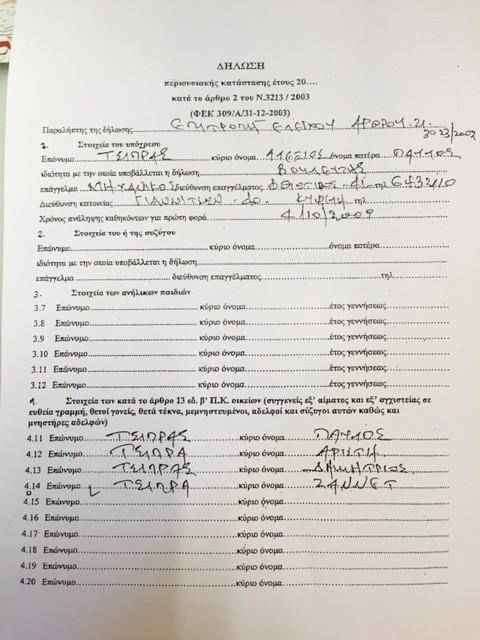 ΔΗΛΩΣΗ
περιουσιακής κατάστασης έτους 20....
κατά το άρθρο 2 του Ν.3213 / 2003
(ΦΕΚ 309/Α/31-12-2003)
Παραλήπτης της δήλωσης ΕΠΙΤΡΟΠΗ ΕΛΕΓΧΟΥ ΑΡΘΡΟΥ 21
3023/2002
1. Στοιχεία του υπόχρεου
Επώνυμο ΤΣΙΠΡΑΣ κύριο όνομα ΑΛΕΞΙΟΣ όνομα πατέρα ΠΑΥΛΟΣ
ιδιότητα με την οποία υποβάλλεται η δήλωση ΒΟΥΛΕΥΤΗΣ
επάγγελμα ΜΗΧΑΝΙΚΟΣ διεύθυνση επαγγέλματος τηλ
Διεύθυνση κατοικίας τηλ
Χρόνος ανάληψης καθηκόντων για πρώτη φορά 4/10/2009
2. Στοιχεία του ή της συζύγου
Επώνυμο κύριο όνομα όνομα πατέρα
ιδιότητα με την οποία υποβάλλεται η δήλωση
επάγγελμα διεύθυνση επαγγέλματος τηλ
3. Στοιχεία των ανήλικων παιδιών
3.7 Επώνυμο κύριο όνομα έτος γεννήσεως
3.8 Επώνυμο κύριο όνομα έτος γεννήσεως
3.9 Επώνυμο κύριο όνομα έτος γεννήσεως
3.10 Επώνυμο κύριο όνομα έτος γεννήσεως
3.11 Επώνυμο κύριο όνομα έτος γεννήσεως
3.12 Επώνυμο κύριο όνομα έτος γεννήσεως
4. Στοιχεία των κατά το άρθρο 13 εδ. β' Π.Κ. οικείων (συγγενείς εξ' αίματος και εξ' αγχιστείας σε
ευθεία γραμμή, θετοί γονείς, θετά τέκνα, μεμνηστευμένοι, αδελφοί και σύζυγοι αυτών καθώς και
μνηστήρες αδελφών)
4.11 Επώνυμο ΤΣΙΠΡΑΣ κύριο όνομα ΠΑΥΛΟΣ
4.12 Επώνυμο ΤΣΙΠΡΑ κύριο όνομα ΑΡΙΣΤΗ
4.13 Επώνυμο ΤΣΙΠΡΑΣ κύριο όνομα ΔΗΜΗΤΡΙΟΣ
4.14 Επώνυμο ΤΣΙΠΡΑ κύριο όνομα ΖΑΝΝΕΤ
4.15 Επώνυμο κύριο όνομα
4.16 Επώνυμο κύριο όνομα
4.17 Επώνυμο κύριο όνομα
4.18 Επώνυμο κύριο όνομα
4.19 Επώνυμο κύριο όνομα
4.20 Επώνυμο κύριο όνομα